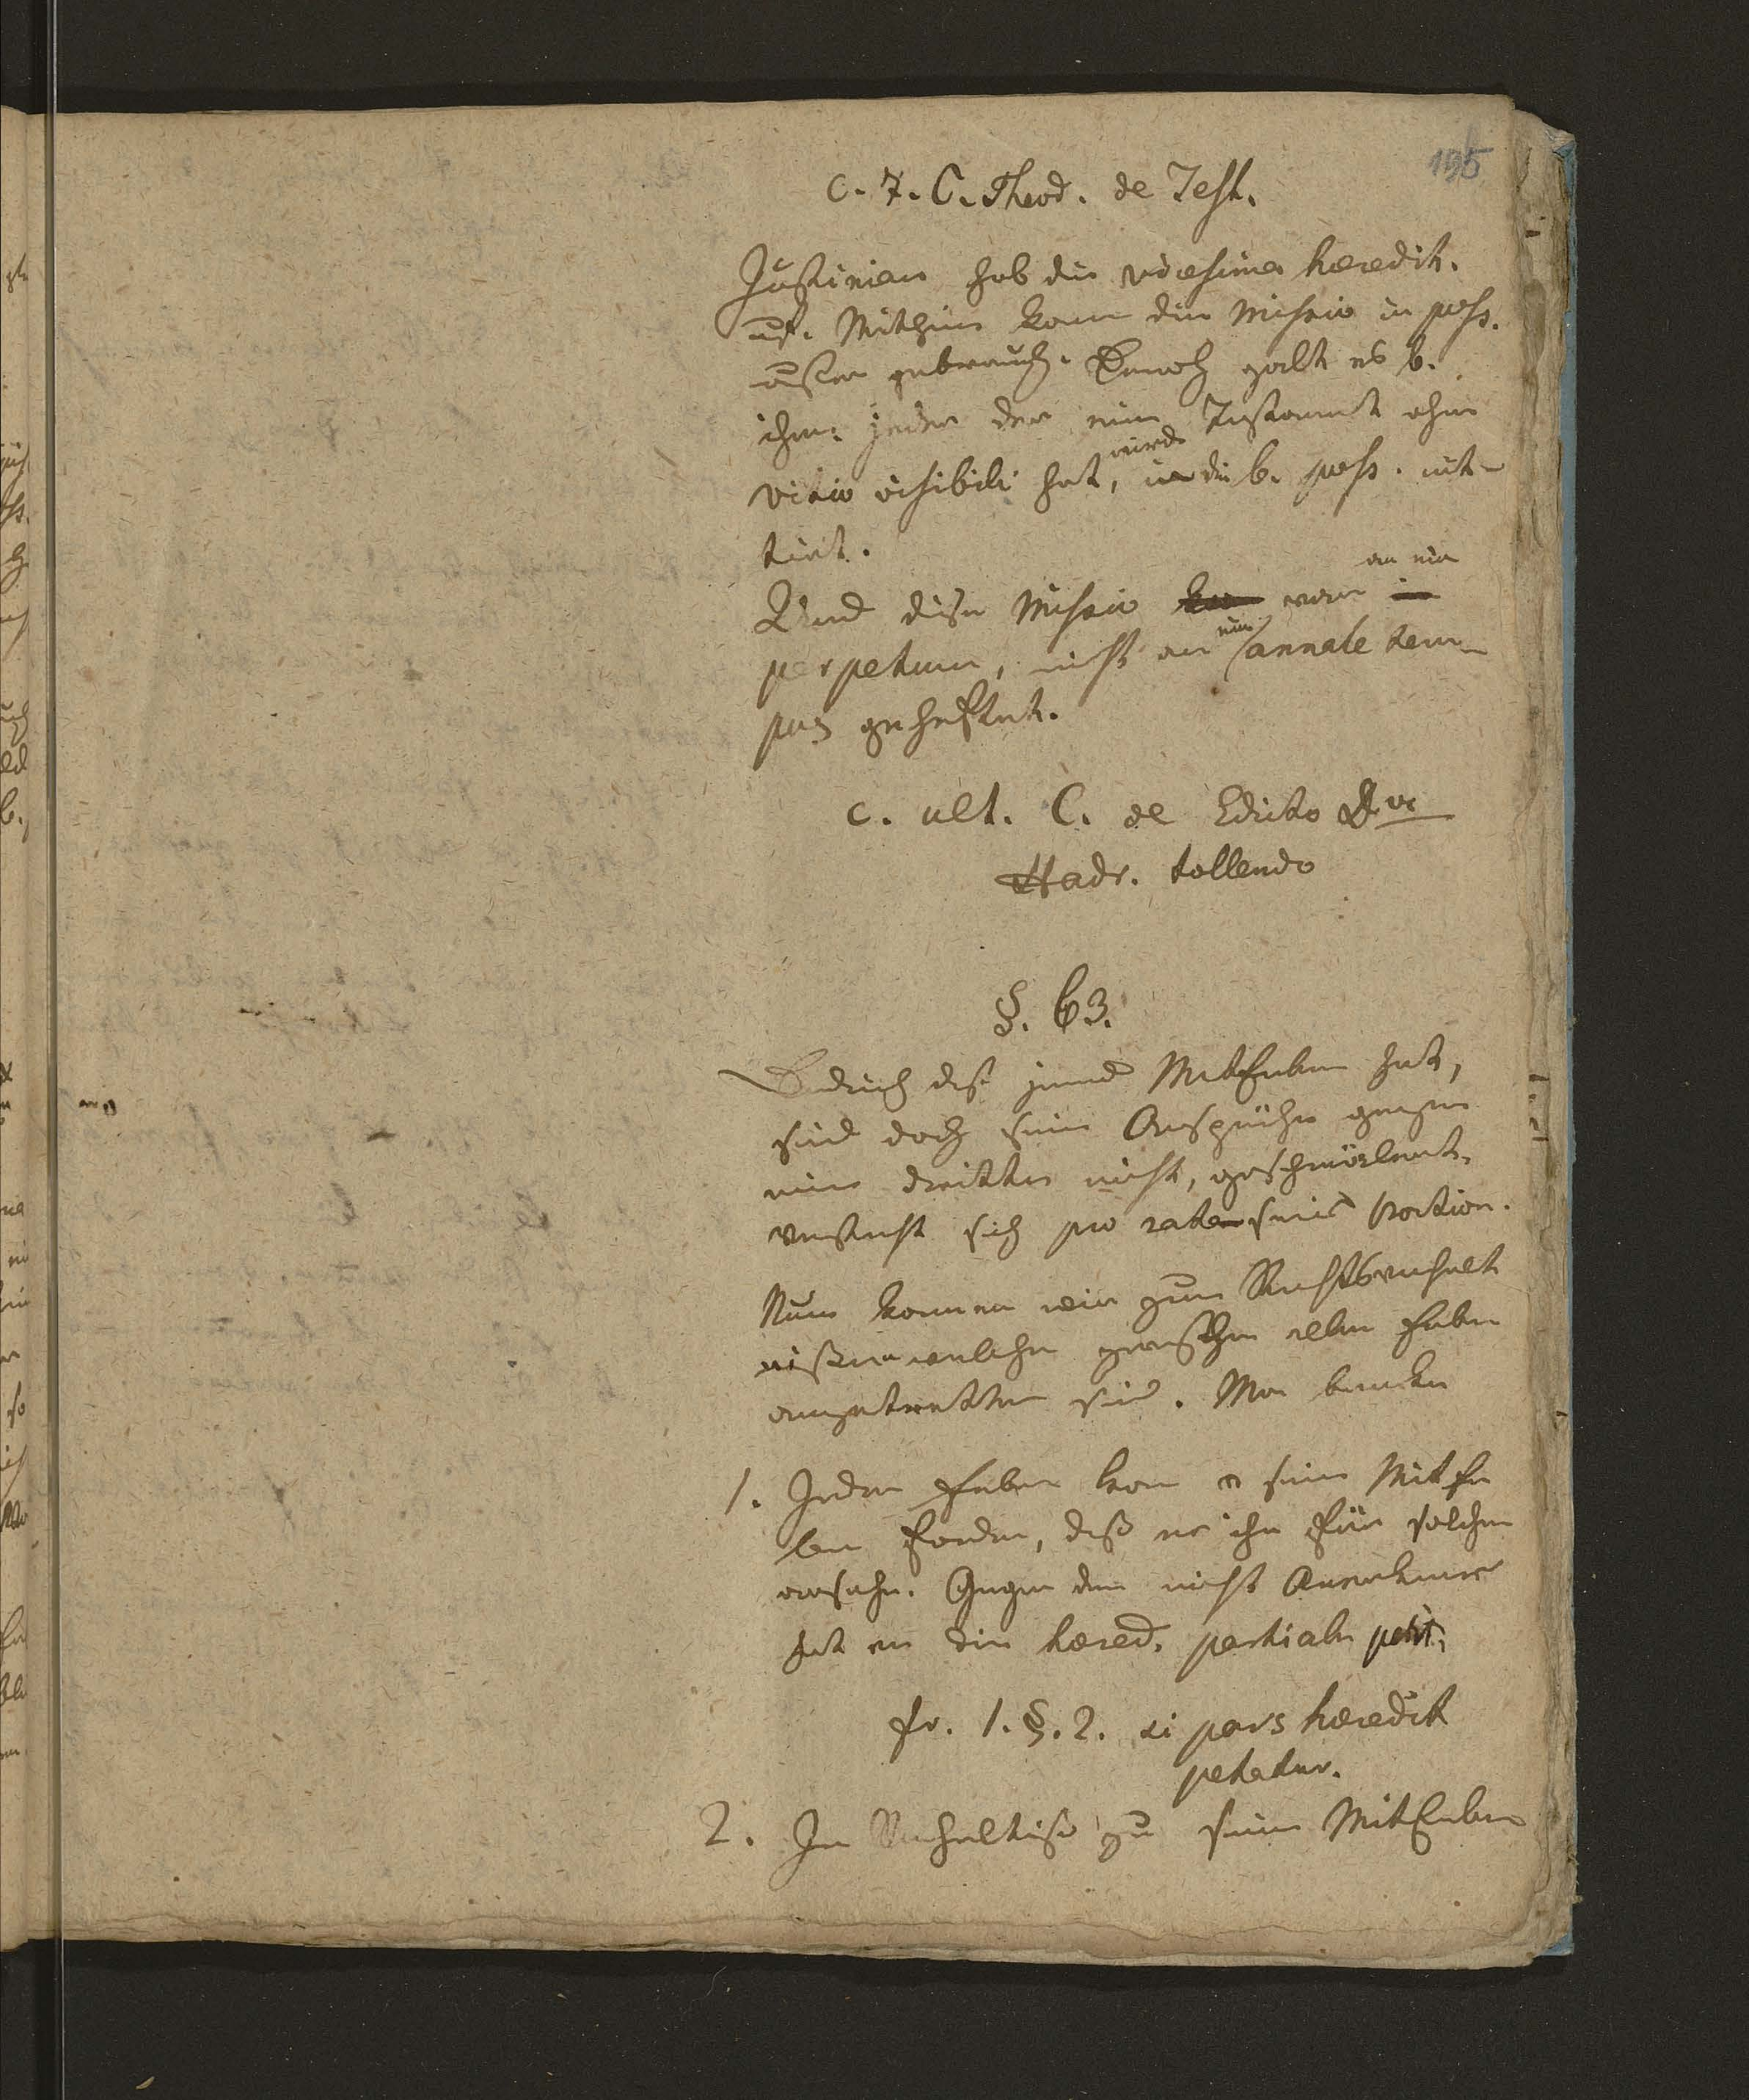 195
c. 7. C. Theod. de Test.
Justinian hob die vicesima haeredit.
auf. Mithin kam die Missio in poss.
außer gebrauch. Dennoch galt es b.
ihm: jeder der ein Testament ohne
wird
vitio visibili hat, in die b. poss. mit-
tirt.
an ein
Und diese Missio war
ein
perpetuum, nicht an annale tem-
pus geheftet.
c. ult. C. de Edicto Divi
Hadr. tollendo
§. 63.
Dadurch daß jemd MitErben hat,
sind doch seine Ansprüche gegen
einen dritten nicht, geschmälert.
versteht sich pro rata seiner Portion.
Nun kommen wir zum Rechtsverhält
nißen welche zwischen allen Erben
eingetretten sind. Man bemerke
1. Jeder Erbe kann v seinen MitEr
ben fordern, daß er ihn für solchen
ansehe. Gegen den nicht Anerkenner
hat er die haered. partialem petit.
fr. 1. §. 2. si pars haeredit
petatur.
2. Im Verhältniße zu seinen MitErben